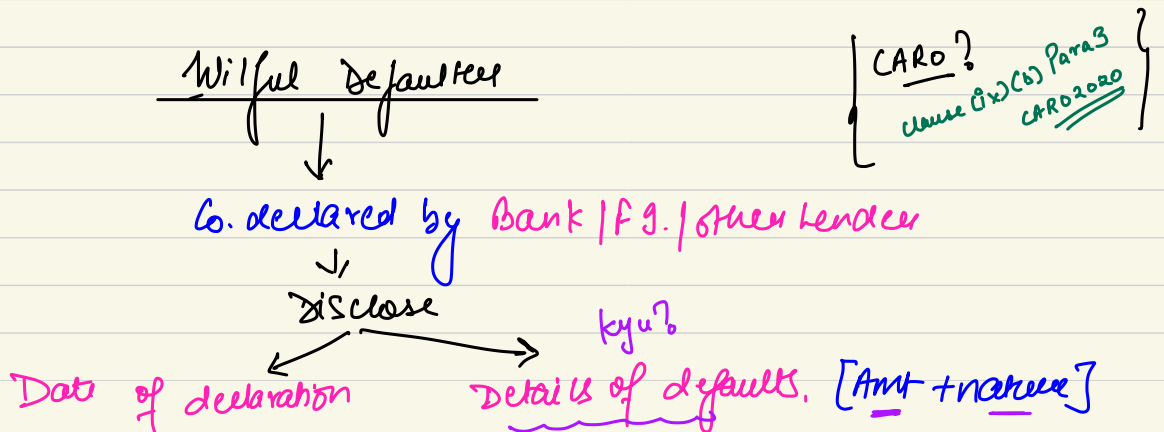 Wilful Defaulter
CARO?
clause (ix)(b) Para 3
CARO 2020
Co. declared by Bank / F.I. / other Lender
Disclose
kyu?
Date of declaration
Details of defaults. [Amt + nature]